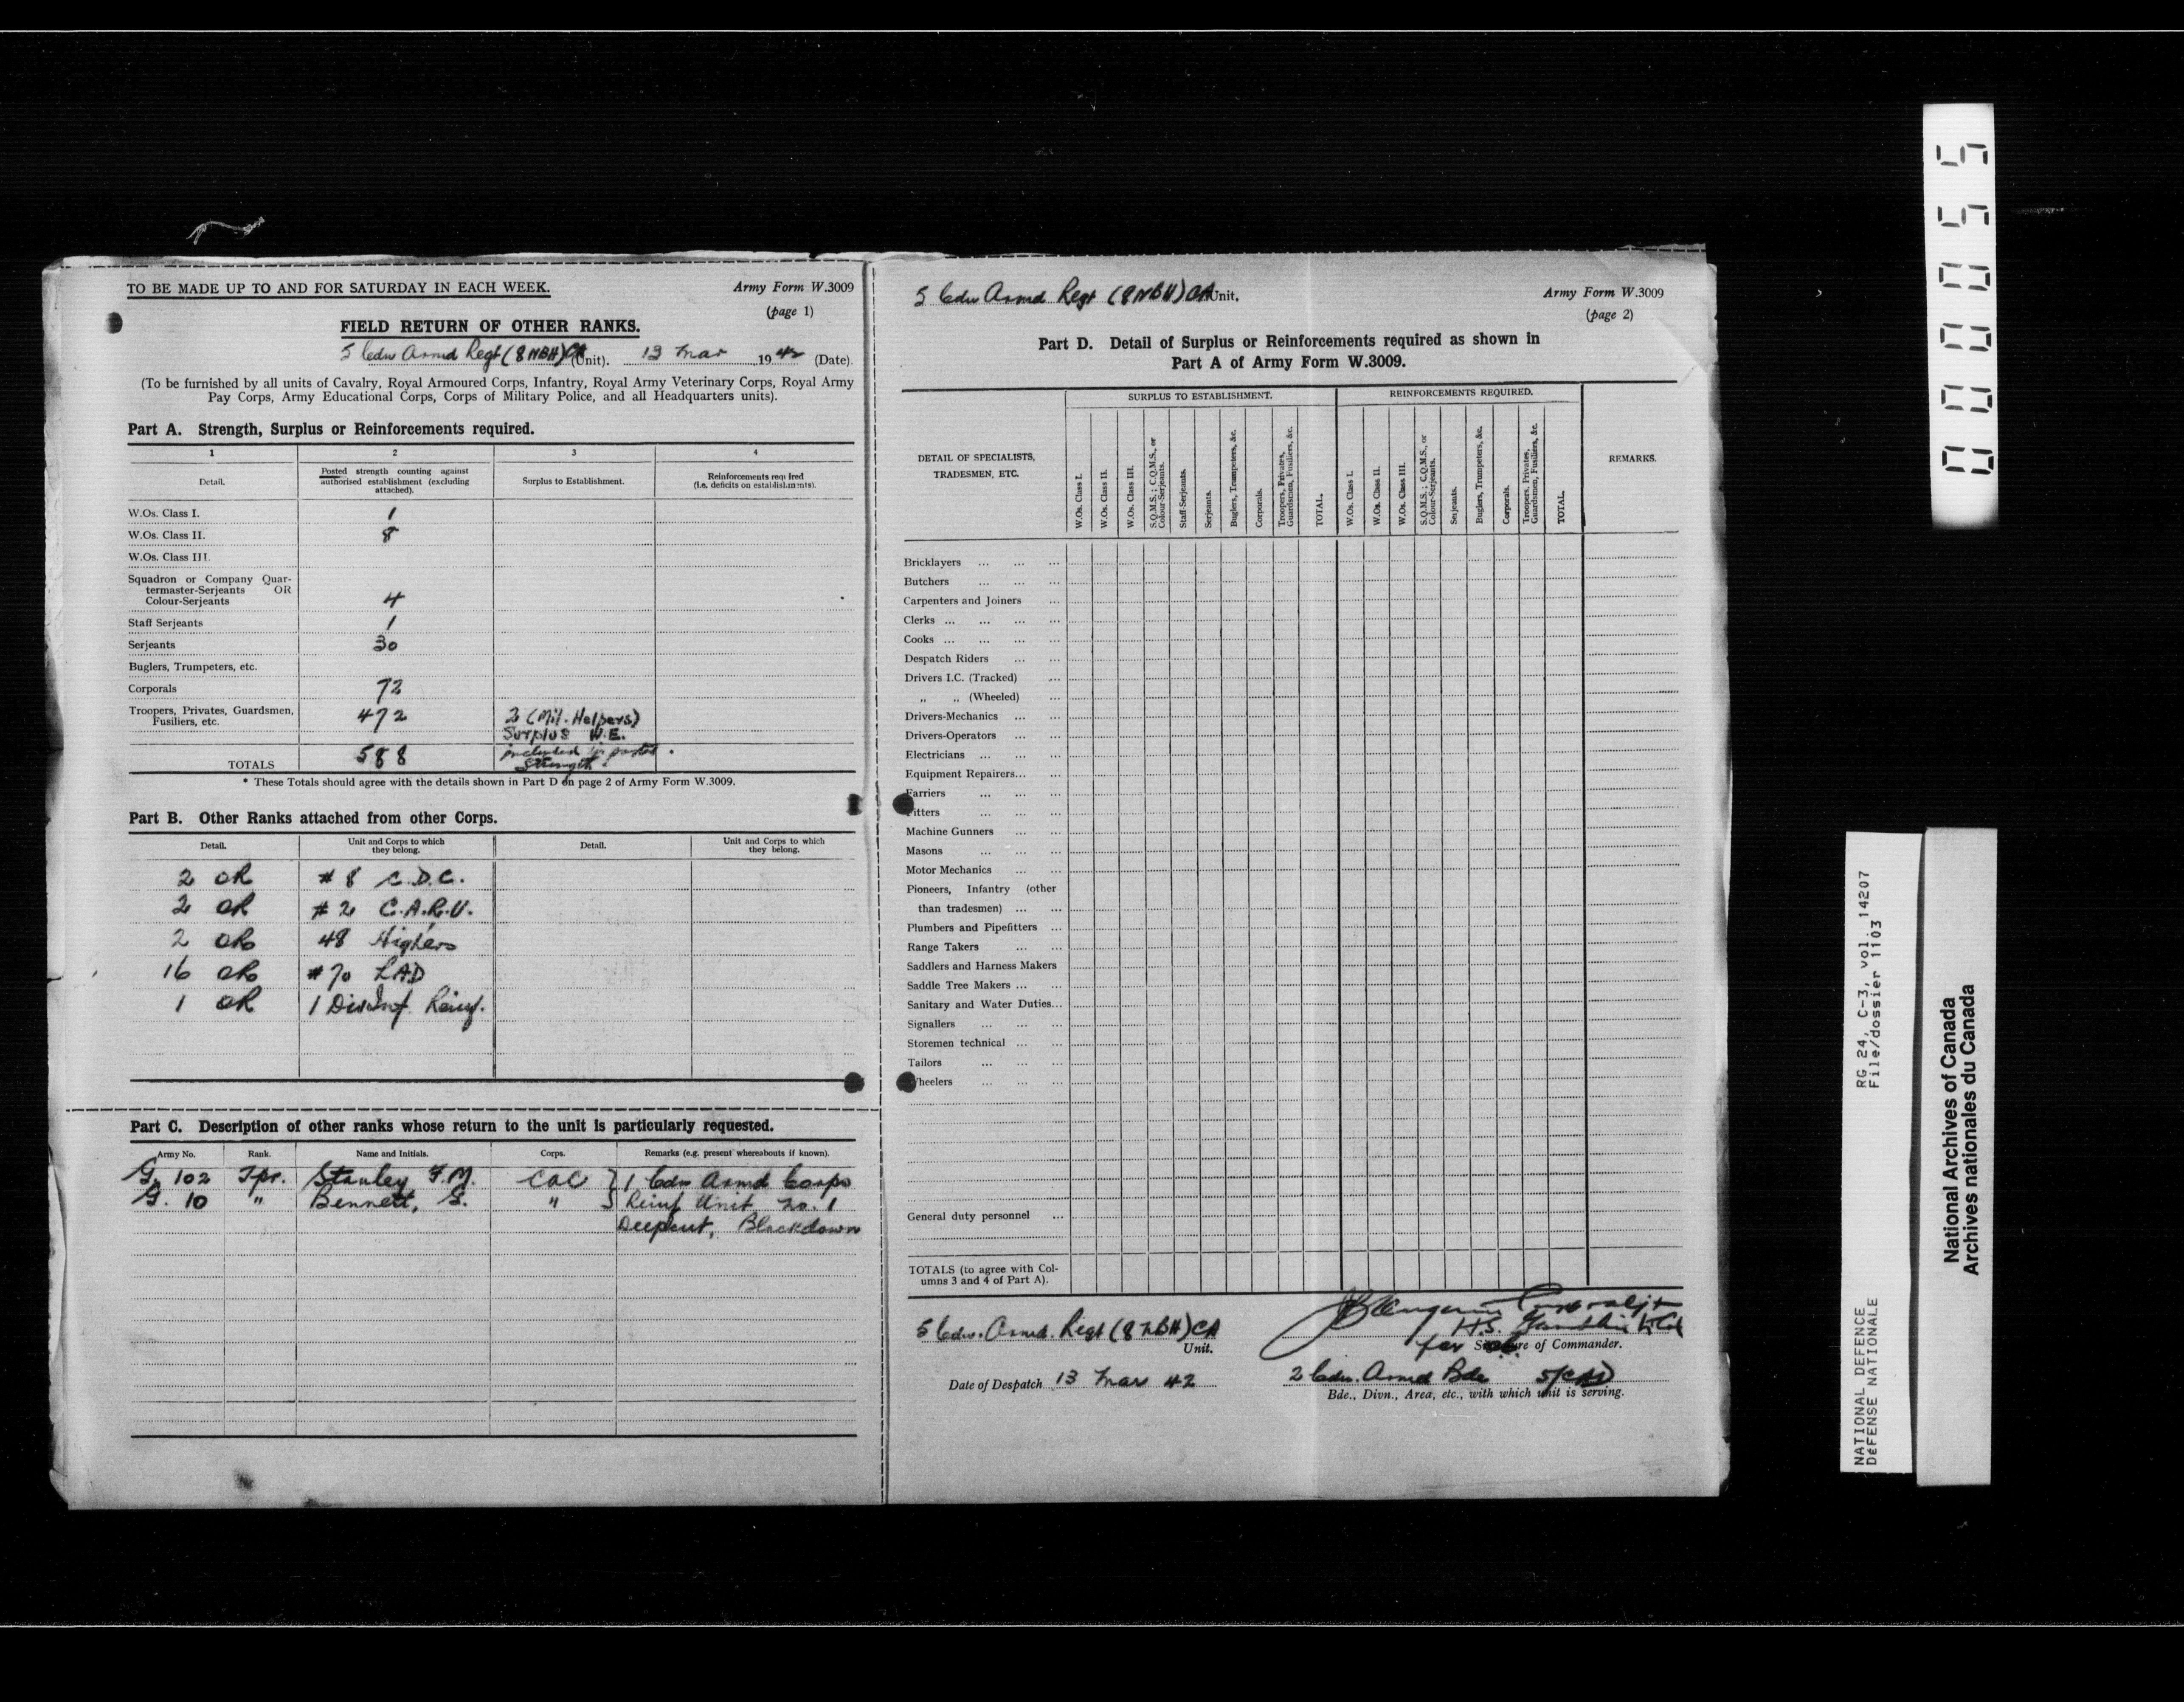 TO BE MADE UP TO AND FOR SATURDAY IN EACH WEEK.
Army Form W.3009
(page 1)
FIELD RETURN OF OTHER RANKS.
5 Cdn Armd Regt (8NBH) CA (Unit). 13 Mar 1942 (Date).
(To be furnished by all units of Cavalry, Royal Armoured Corps, Infantry, Royal Army Veterinary Corps, Royal Army
Pay Corps, Army Educational Corps, Corps of Military Police, and all Headquarters units).
Part A. Strength, Surplus or Reinforcements required.
1 2 3 4
Detail.
Posted strength counting against
authorised establishment (excluding
attached).
Surplus to Establishment.
Reinforcements required
(i.e. deficits on establishments).
W.Os. Class I. 1
W.Os. Class II. 8
W.Os. Class III.
Squadron or Company Quar-
termaster-Serjeants OR
Colour-Serjeants 4
Staff Serjeants 1
Serjeants 30
Buglers, Trumpeters, etc.
Corporals 72
Troopers, Privates, Guardsmen,
Fusiliers, etc. 472
2 (Mil. Helpers)
Surplus W.E.
included in posted
Strength.
TOTALS 588
* These Totals should agree with the details shown in Part D on page 2 of Army Form W.3009.
Part B. Other Ranks attached from other Corps.
Detail.
Unit and Corps to which
they belong.
Detail.
Unit and Corps to which
they belong.
2 OR # 8 C.D.C.
2 OR # 2 C.A.R.U.
2 ORs 48 Highers
16 ORs # 70 LAD
1 OR 1 Div Inf. Reinf.
Part C. Description of other ranks whose return to the unit is particularly requested.
Army No. Rank. Name and Initials. Corps. Remarks (e.g. present whereabouts if known).
G. 102 Tpr. Stanley F.M. CAC } 1 Cdn Armd Corps
G. 10 " Bennett, G. " } Reinf Unit No. 1
Deepcut, Blackdown
5 Cdn Armd Regt (8NBH) CA Unit.
Army Form W.3009
(page 2)
Part D. Detail of Surplus or Reinforcements required as shown in
Part A of Army Form W.3009.
DETAIL OF SPECIALISTS,
TRADESMEN, ETC.
SURPLUS TO ESTABLISHMENT.
W.Os. Class I.
W.Os. Class II.
W.Os. Class III.
S.Q.M.S.; C.Q.M.S., or
Colour-Serjeants.
Staff-Serjeants.
Serjeants.
Buglers, Trumpeters, &c.
Corporals.
Troopers, Privates,
Guardsmen, Fusiliers, &c.
TOTAL.
REINFORCEMENTS REQUIRED.
W.Os. Class I.
W.Os. Class II.
W.Os. Class III.
S.Q.M.S.; C.Q.M.S., or
Colour-Serjeants.
Serjeants.
Buglers, Trumpeters, &c.
Corporals.
Troopers, Privates,
Guardsmen, Fusiliers, &c.
TOTAL.
REMARKS.
Bricklayers ... ... ...
Butchers ... ... ...
Carpenters and Joiners ...
Clerks ... ... ... ...
Cooks ... ... ... ...
Despatch Riders ... ...
Drivers I.C. (Tracked) ...
„ „ (Wheeled) ...
Drivers-Mechanics ... ...
Drivers-Operators ... ...
Electricians ... ... ...
Equipment Repairers... ...
Farriers ... ... ...
Fitters ... ... ...
Machine Gunners ... ...
Masons ... ... ...
Motor Mechanics ... ...
Pioneers, Infantry (other
than tradesmen) ... ...
Plumbers and Pipefitters ...
Range Takers ... ...
Saddlers and Harness Makers
Saddle Tree Makers ... ...
Sanitary and Water Duties...
Signallers ... ... ...
Storemen technical ... ...
Tailors ... ... ...
Wheelers ... ... ...
General duty personnel ...
TOTALS (to agree with Col-
umns 3 and 4 of Part A).
5 Cdn. Armd. Regt (8NBH) CA
Unit.
for Signature of Commander.
Date of Despatch 13 Mar 42
2 Cdn. Armd Bde 5/CAD
Bde., Divn., Area, etc., with which unit is serving.
000055
RG 24, C-3, vol. 14207
File/dossier 1103
NATIONAL DEFENCE
DÉFENSE NATIONALE
National Archives of Canada
Archives nationales du Canada